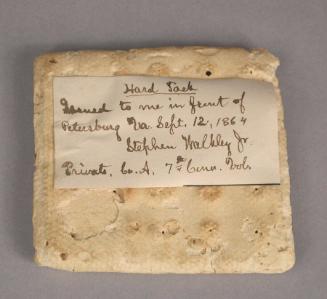 Hard Tack
Issued to me in front of
Petersburg Va. Sept. 12, 1864
Stephen Walkley Jr.
Private, Co. A, 7th Conn. Vols.